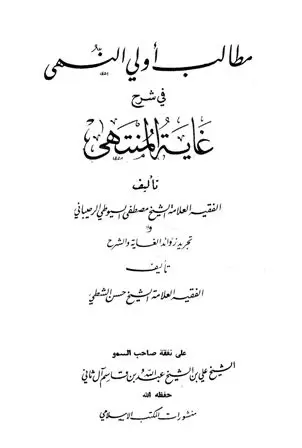 مطالب أولي النهى
في شرح
غاية المنتهى
تأليف
الفقيه العلامة الشيخ مصطفى السيوطي الرحيباني
و
تجريد زوائد الغاية والشرح
تأليف
الفقيه العلامة الشيخ حسن الشطي
على نفقة صاحب السمو
الشيخ علي بن الشيخ عبد الله بن قاسم آل ثاني
حفظه الله
منشورات المكتب الإسلامي